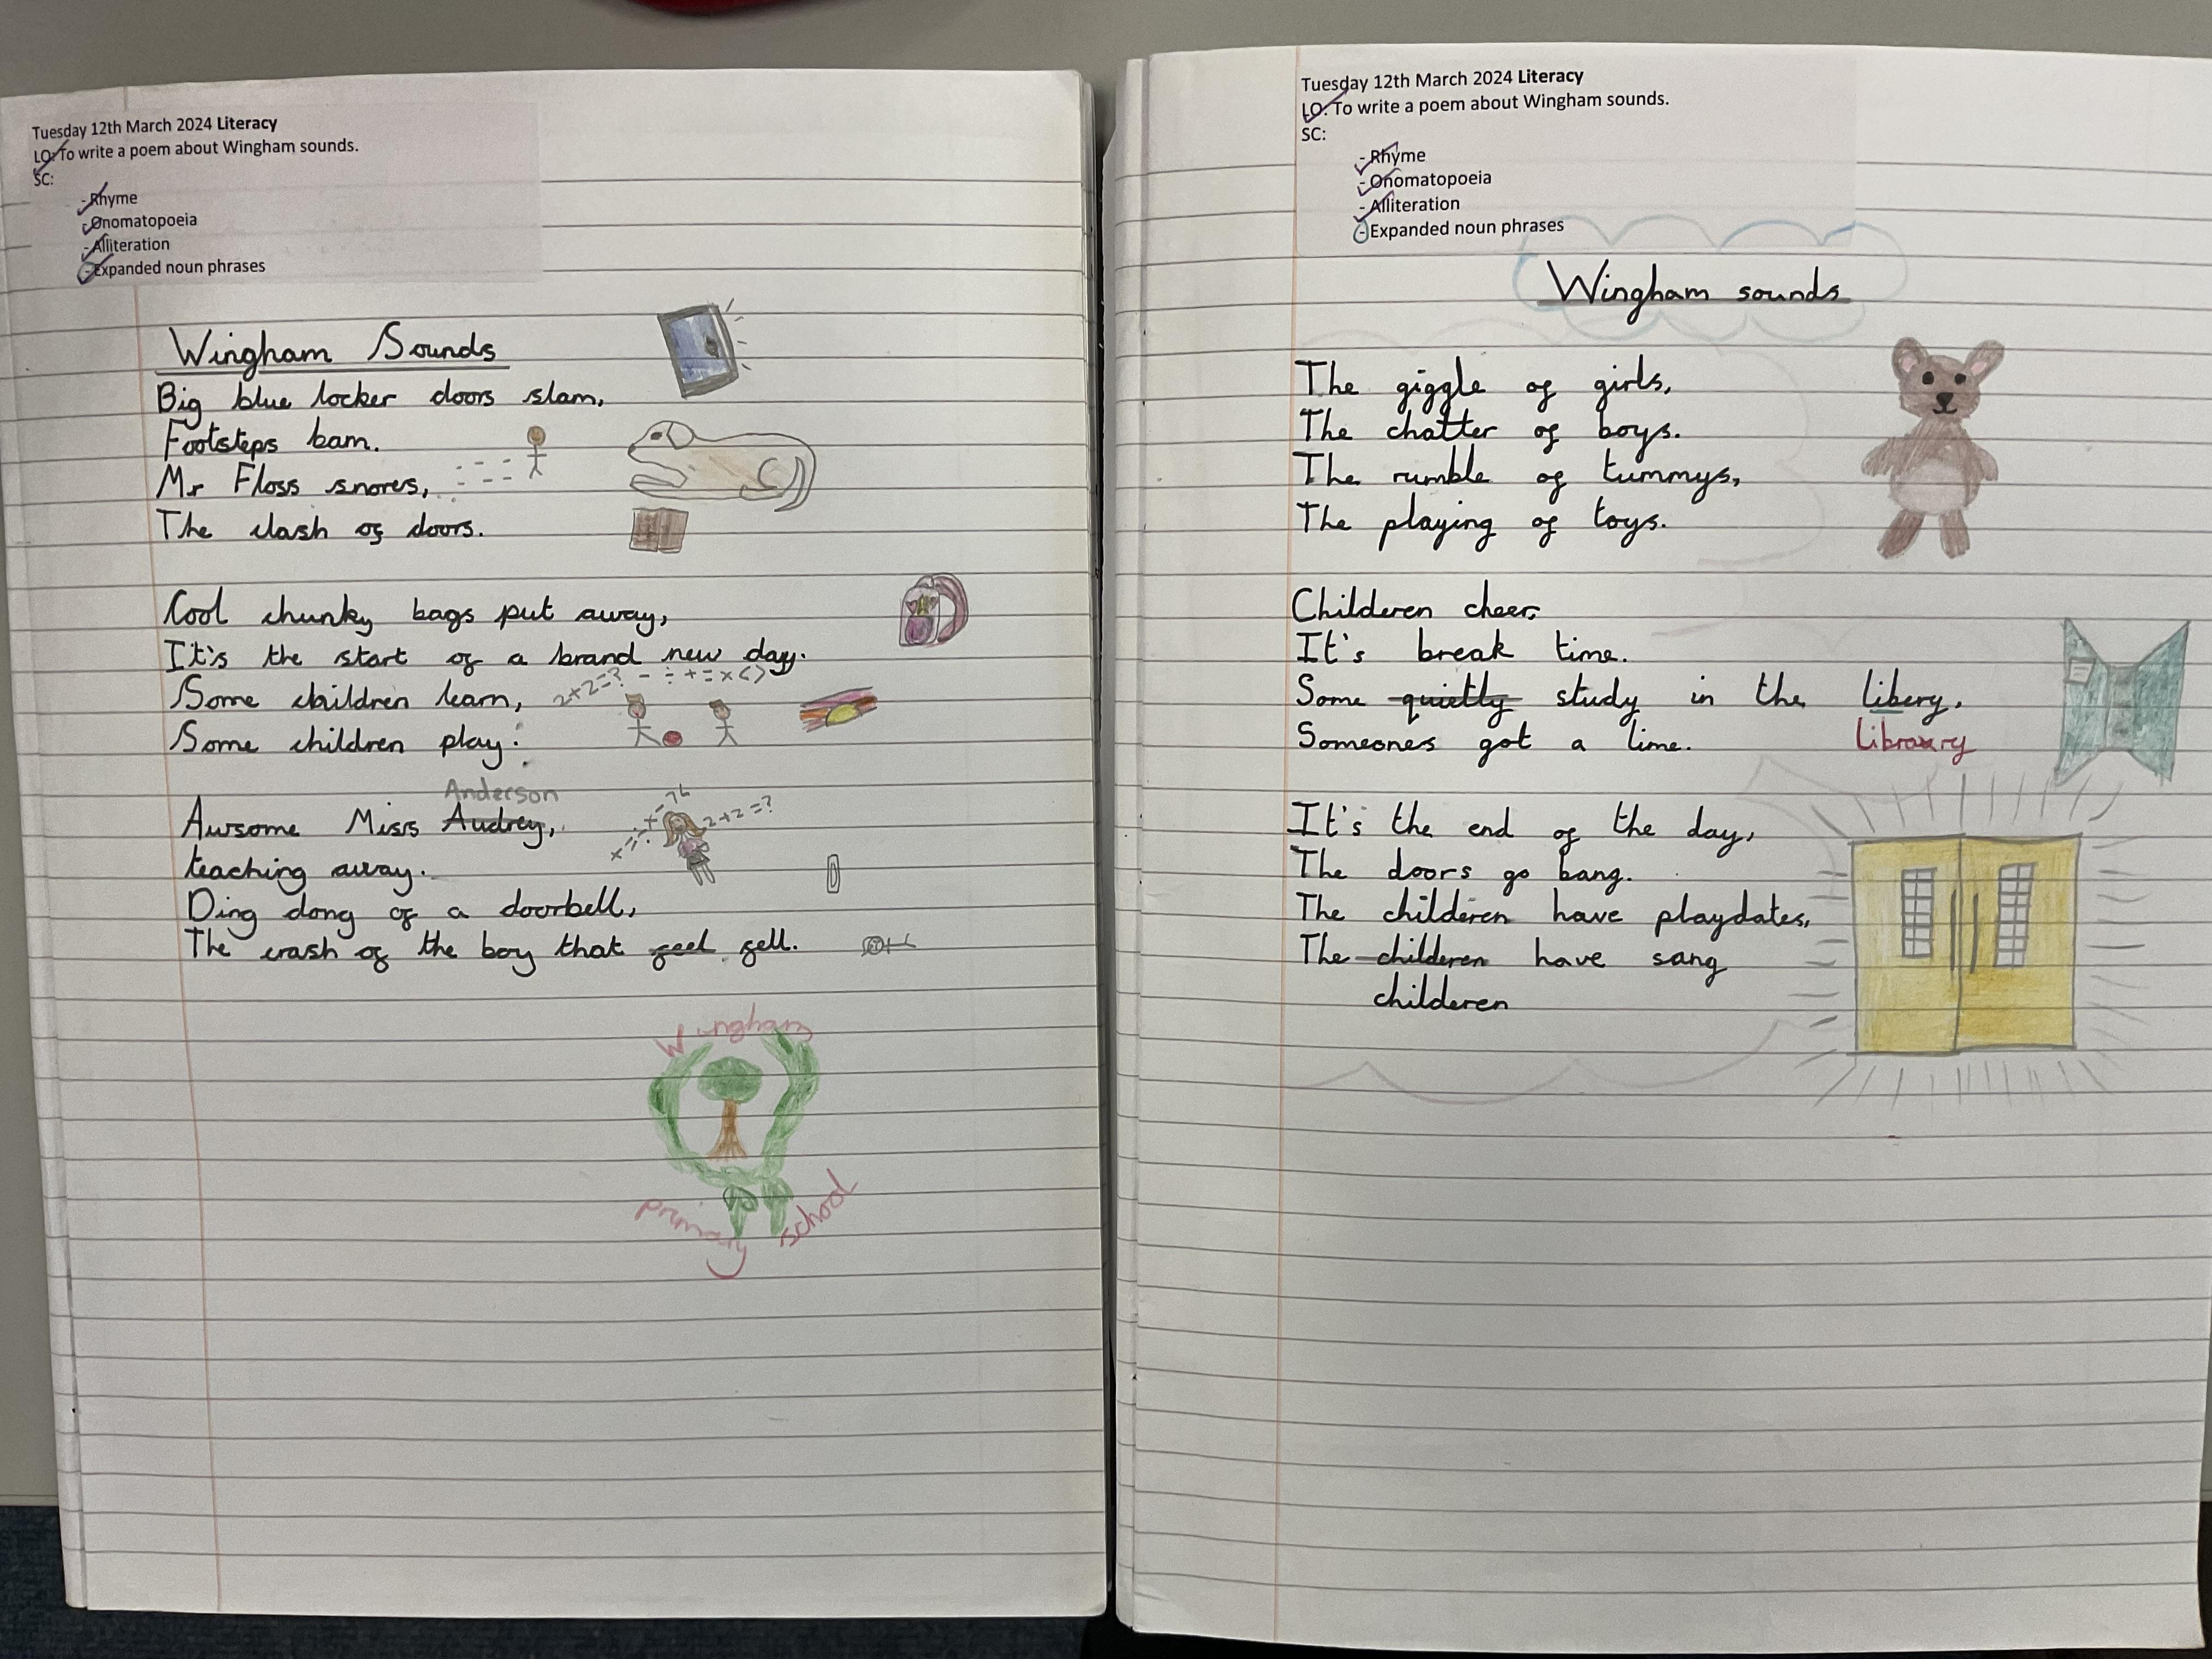 Tuesday 12th March 2024 Literacy
LO: To write a poem about Wingham sounds.
SC:
- Rhyme
- Onomatopoeia
- Alliteration
- Expanded noun phrases
Wingham Sounds
Big blue locker doors slam,
Footsteps bam.
Mr Floss snores,
The clash of doors.
Cool chunky bags put away,
It's the start of a brand new day.
2+2=? - ÷ + = x < >
Some children learn,
Some children play.
Anderson
Awsome Miss Audrey,
2+2=?
teaching away.
Ding dong of a doorbell,
The crash of the boy that feel fell.
Wingham
primary school
Tuesday 12th March 2024 Literacy
LO: To write a poem about Wingham sounds.
SC:
- Rhyme
- Onomatopoeia
- Alliteration
- Expanded noun phrases
Wingham sounds
The giggle of girls,
The chatter of boys.
The rumble of tummys,
The playing of toys.
Childeren cheer,
It's break time.
Some quietly study in the libery,
Someones got a lime.
library
It's the end of the day,
The doors go bang.
The childeren have playdates,
The childeren have sang
childeren